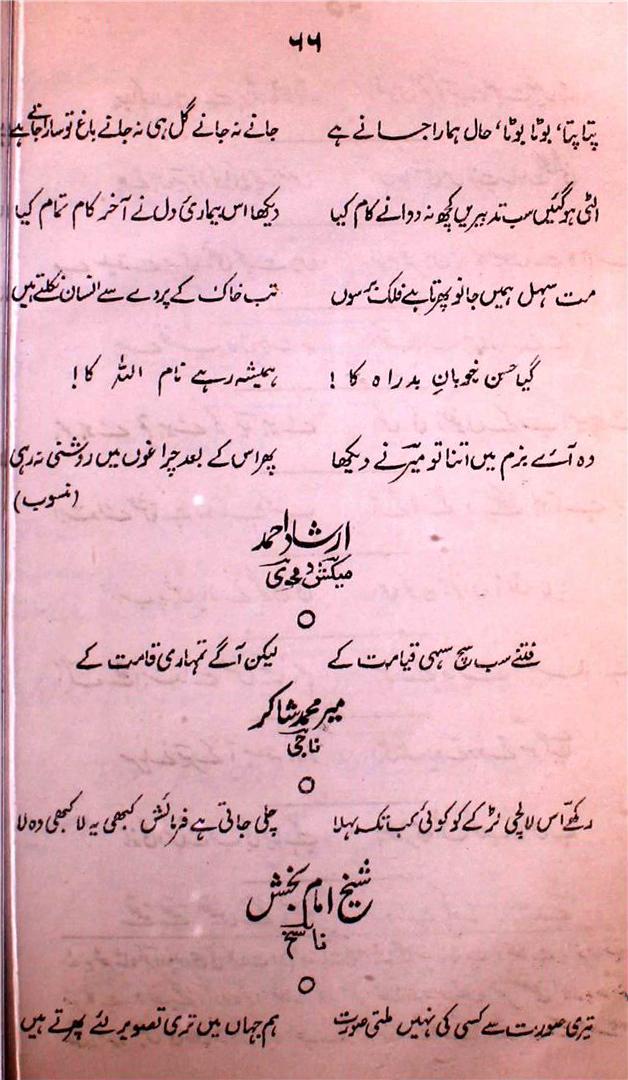 ۶۶
پتا پتا، بوٹا بوٹا، حال ہمارا جانے ہے جانے نہ جانے گل ہی نہ جانے باغ تو سارا جانے ہے
الٹی ہوگئیں سب تدبیریں کچھ نہ دوانے کام کیا دیکھا اس بیماریٔ دل نے آخر کام تمام کیا
مت سہل ہمیں جانو پھرتا ہے فلک برسوں تب خاک کے پردے سے انسان نکلتے ہیں
گیا حسن خوبانِ بد راہ کا ! ہمیشہ رہے نام اللہ کا !
وہ آئے بزم میں اتنا تو میرؔ نے دیکھا پھر اس کے بعد چراغوں میں روشنی نہ رہی
(منسوب)
ارشاد احمد
میکش
فتنے سب سچ سہی قیامت کے لیکن آگے تمہاری قامت کے
میر محمد شاکر
ناجی
رکھے اس لالچی لڑکے کو کوئی کب تک بہلا چلی جاتی ہے فرمائش کبھی یہ لا کبھی وہ لا
شیخ امام بخش
ناسخ
تیری صورت سے کسی کی نہیں ملتی صورت ہم جہاں میں تری تصویر لئے پھرتے ہیں